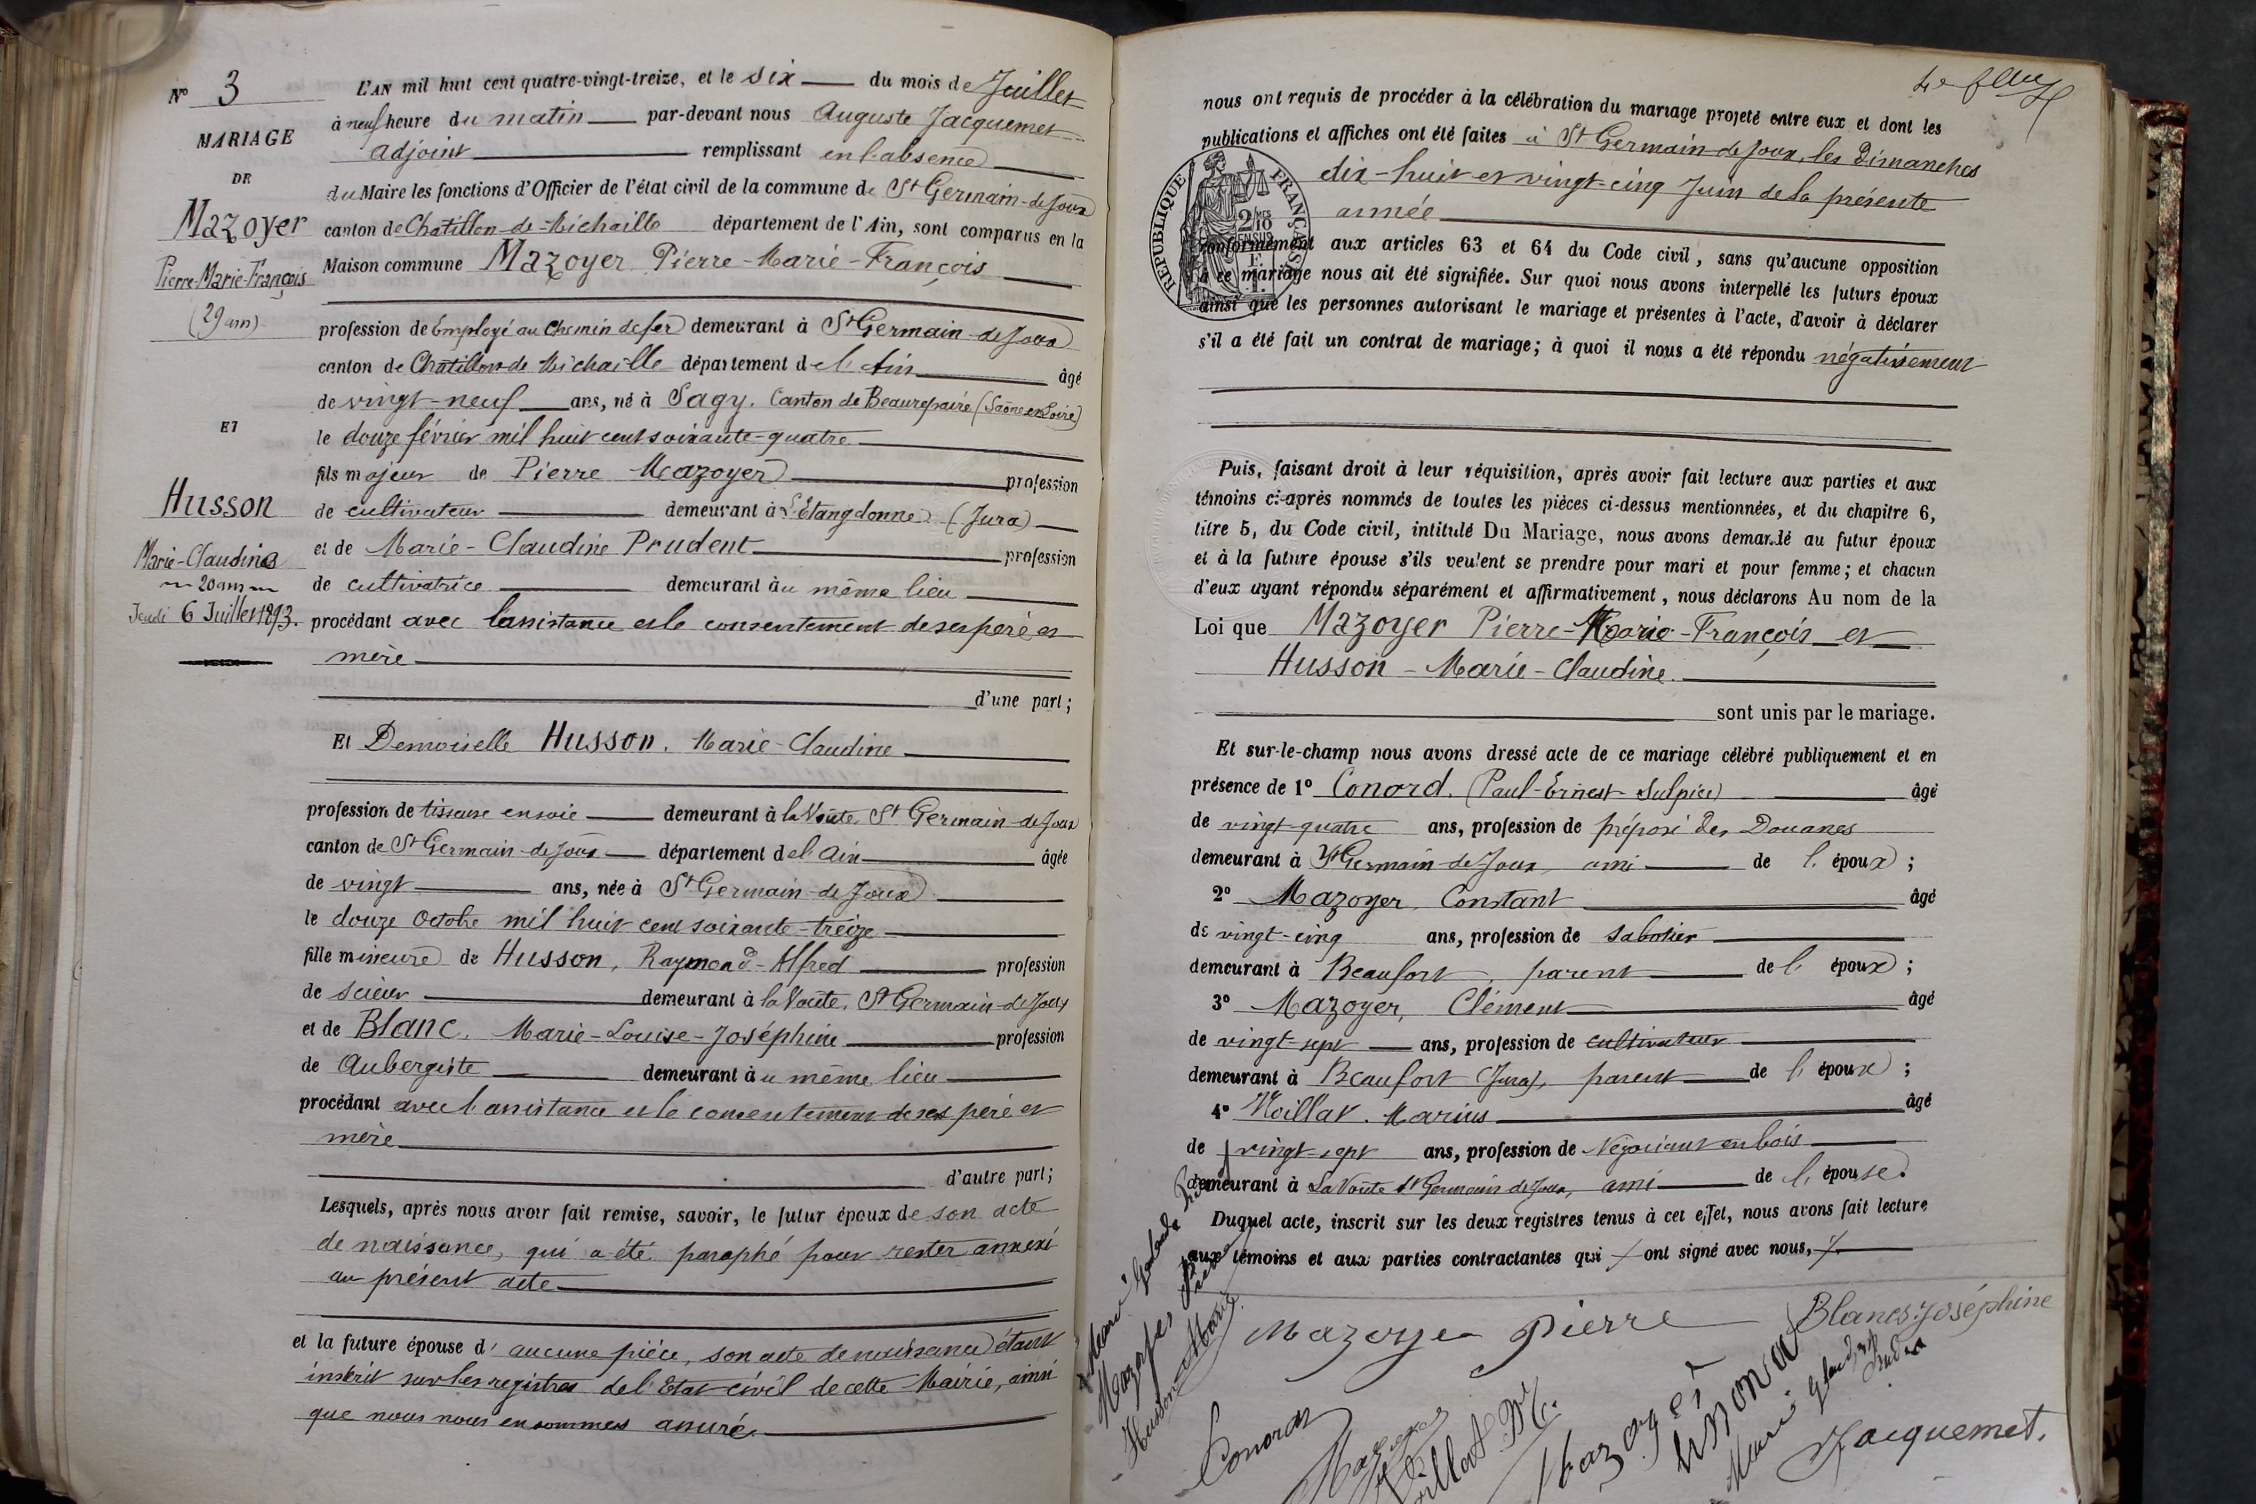 N° 3
MARIAGE
DE
Mazoyer
Pierre-Marie-François
(29 ans)
ET
Husson
Marie-Claudine
20 ans
Jeudi 6 Juillet 1893.
L'AN mil huit cent quatre-vingt-treize, et le six du mois de Juillet
à neuf heure du matin par-devant nous Auguste Jacquemet
adjoint remplissant en l'absence
du Maire les fonctions d'Officier de l'état civil de la commune de St Germain-de-Joux
canton de Chatillon-de-Michaille département de l'Ain, sont comparus en la
Maison commune Mazoyer Pierre-Marie-François
profession de Employé au Chemin de fer demeurant à St Germain-de-Joux
canton de Chatillon de Michaille département de l'Ain âgé
de vingt-neuf ans, né à Sagy. Canton de Beaurepaire (Saône et Loire)
le douze février mil huit cent soixante-quatre
fils majeur de Pierre Mazoyer profession
de cultivateur demeurant à (Jura)
et de Marie-Claudine Prudent profession
de cultivatrice demeurant au même lieu
procédant avec l'assistance et le consentement de ses père et
mère
d'une part;
Et Demoiselle Husson. Marie-Claudine
profession de tisseuse en soie demeurant à la Voûte. St Germain-de-Joux
canton de St Germain-de-Joux département de l'Ain âgée
de vingt ans, née à St Germain-de-Joux
le douze Octobre mil huit cent soixante-treize
fille mineure de Husson, Raymond-Alfred profession
de scieur demeurant à la Voûte. St Germain-de-Joux
et de Blanc. Marie-Louise-Joséphine profession
de Aubergiste demeurant au même lieu
procédant avec l'assistance et le consentement de ses père et
mère
d'autre part;
Lesquels, après nous avoir fait remise, savoir, le futur époux de son acte
de naissance, qui a été paraphé pour rester annexé
au présent acte
et la future épouse d'aucune pièce, son acte de naissance étant
inscrit sur les registres de l'Etat civil de cette Mairie, ainsi
que nous nous en sommes assuré.
RÉPUBLIQUE FRANÇAISE
nous ont requis de procéder à la célébration du mariage projeté entre eux et dont les
publications et affiches ont été faites à St Germain-de-Joux, les Dimanches
dix-huit et vingt-cinq Juin de la présente
année
conformément aux articles 63 et 64 du Code civil, sans qu'aucune opposition
à ce mariage nous ait été signifiée. Sur quoi nous avons interpellé les futurs époux
ainsi que les personnes autorisant le mariage et présentes à l'acte, d'avoir à déclarer
s'il a été fait un contrat de mariage; à quoi il nous a été répondu négativement
Puis, faisant droit à leur réquisition, après avoir fait lecture aux parties et aux
témoins ci-après nommés de toutes les pièces ci-dessus mentionnées, et du chapitre 6,
titre 5, du Code civil, intitulé Du Mariage, nous avons demandé au futur époux
et à la future épouse s'ils veulent se prendre pour mari et pour femme; et chacun
d'eux ayant répondu séparément et affirmativement, nous déclarons Au nom de la
Loi que Mazoyer Pierre-Marie-François et
Husson-Marie-Claudine.
sont unis par le mariage.
Et sur-le-champ nous avons dressé acte de ce mariage célébré publiquement et en
présence de 1° Conord. (Paul-Ernest-Sulpice) âgé
de vingt-quatre ans, profession de préposé des Douanes
demeurant à St Germain-de-Joux, ami de l'époux;
2° Mazoyer Constant âgé
de vingt-cinq ans, profession de sabotier
demeurant à Beaufort, parent de l'époux;
3° Mazoyer, Clément âgé
de vingt-sept ans, profession de cultivateur
demeurant à Beaufort (Jura), parent de l'époux;
4° Marius âgé
de vingt-sept ans, profession de Négociant en bois
demeurant à La Voûte St Germain de Joux, ami de l'épouse.
Duquel acte, inscrit sur les deux registres tenus à cet effet, nous avons fait lecture
aux témoins et aux parties contractantes qui ont signé avec nous,
Mazoyer Pierre
Husson Marie
Mazoyer Pierre
Blanc Joséphine
Conord
Mazoyer
Jacquemet.